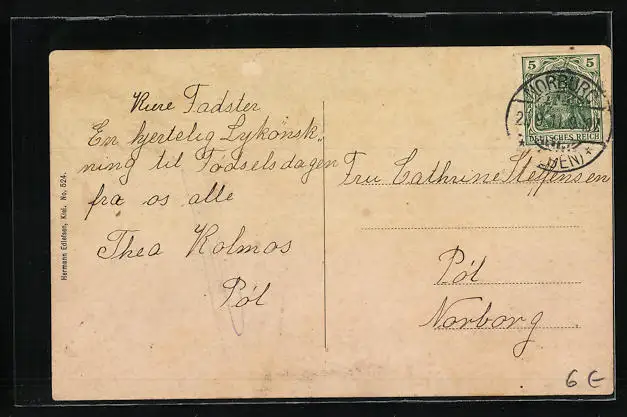 Kære Fadster
En hjertelig Lykönsk„
ning til Fødselsdagen
fra os alle
Thea Kolmos
Pöl
Fru Cathrine Steffensen
Pöl
Norborg.
5 5
DEUTSCHES REICH
NORBURG
(ALSEN)
Hermann Edlefsen, Kiel. No. 524.
6 E